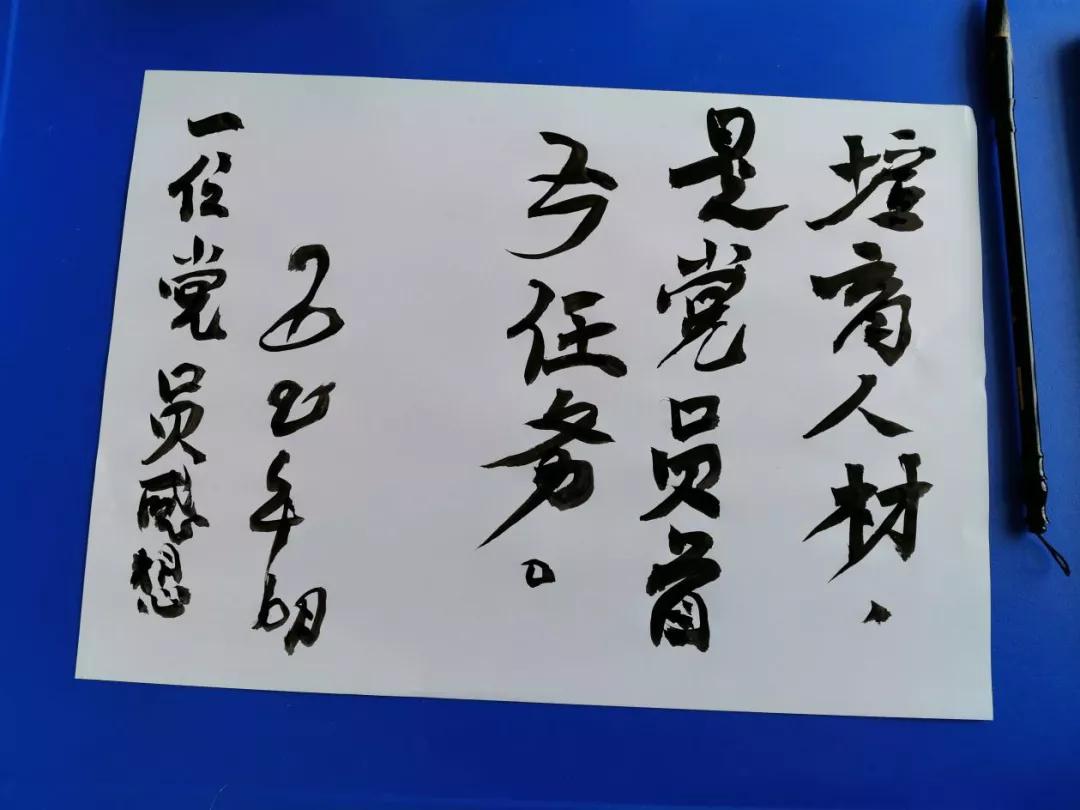 培育人材、
是党员首
要任务。
2021年6月
一位党员感想